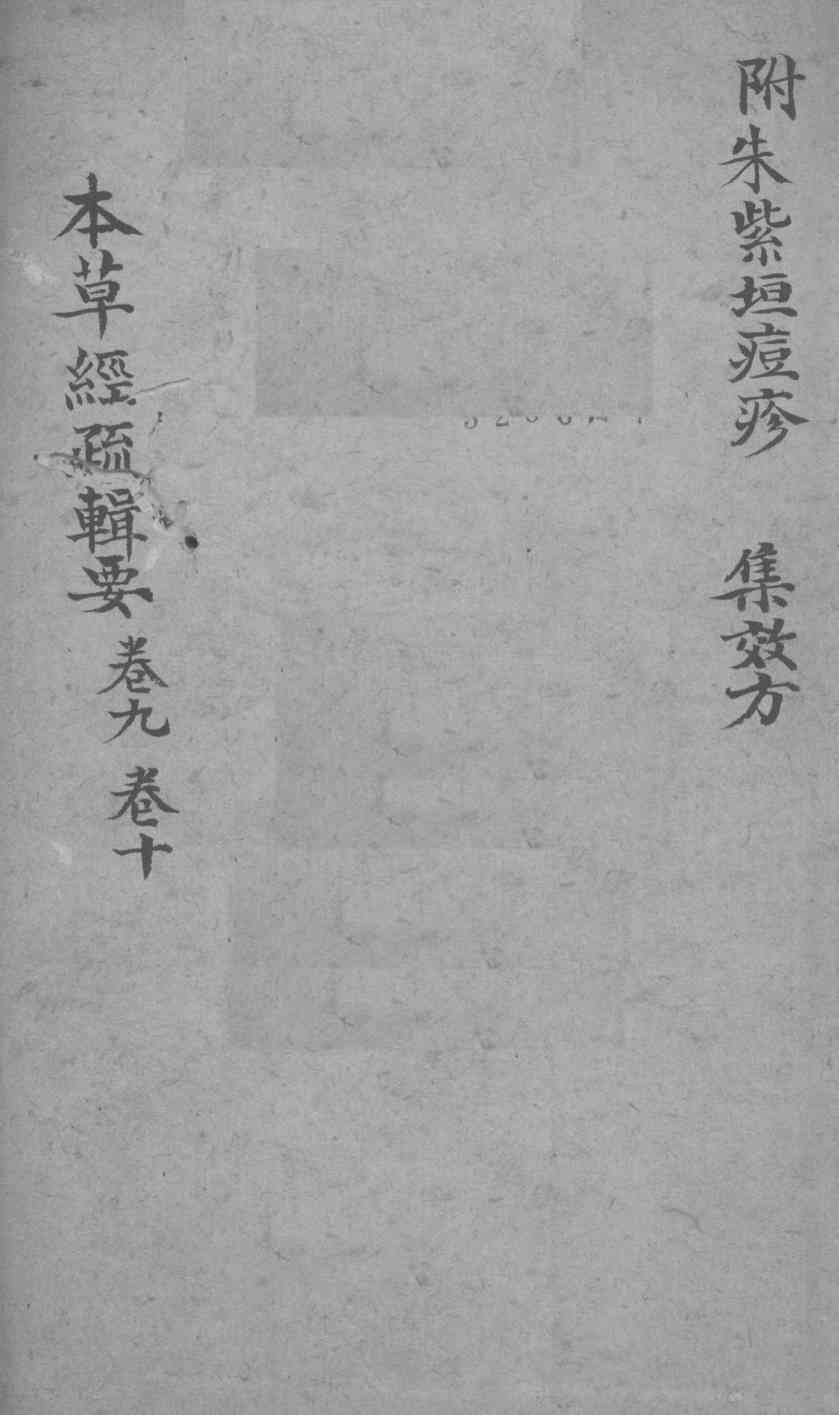 附朱紫垣痘疹 集效方
本草經疏輯要 卷九 卷十